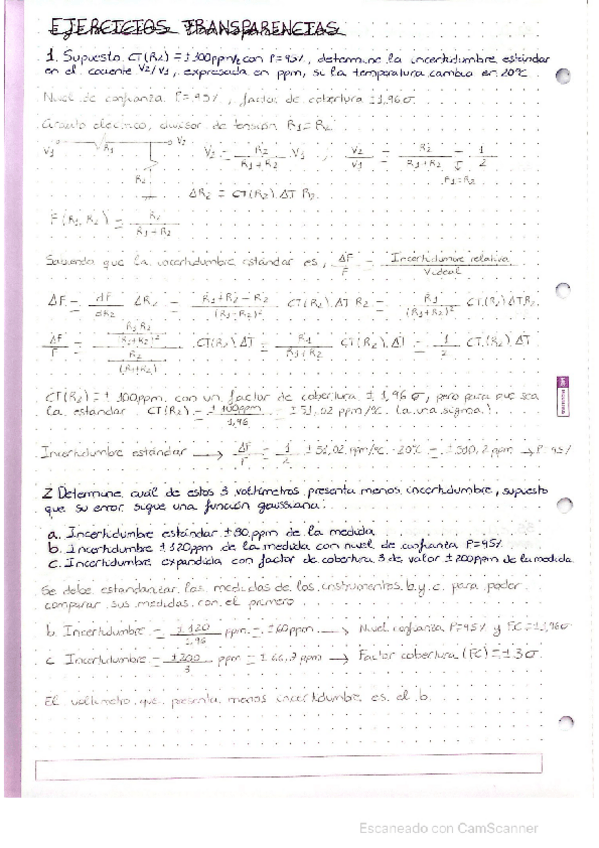 EJERCICIOS TRANSPARENCIAS
1. Supuesto CT(R2) = ±100ppm/ºC con P=95%, determine la incertidumbre estándar
en el cociente V2/V1, expresada en ppm, si la temperatura cambia en 20ºC.
Nivel de confianza P=95%, factor de cobertura ±1,96σ
Circuito eléctrico, divisor de tensión R1=R2
V1 R1 V2 V2 = R2/(R1+R2) V1 , V2/V1 = R2/(R1+R2) = 1/2
R1=R2
R2 ΔR2 = CT(R2).ΔT R2
F(R1,R2) = R2/(R1+R2)
Sabiendo que la incertidumbre estándar es, ΔF/F = Incertidumbre relativa/V.ideal
ΔF = dF/dR2 ΔR2 = (R1+R2-R2)/(R1+R2)² CT(R2).ΔT R2 = R1/(R1+R2)² CT(R2)ΔT R2
ΔF/F = (R1R2/(R1+R2)²)/(R2/(R1+R2)) CT(R2)ΔT = R1/(R1+R2) CT(R2).ΔT = 1/2 CT(R2).ΔT
CT(R2) = ± 100ppm con un factor de cobertura ± 1,96 σ, pero para que sea
la estándar CT(R2) = ±100ppm/1,96 = ±51,02 ppm/ºC (a una sigma)
Incertidumbre estándar → ΔF/F = 1/2 ±51,02 ppm/ºC · 20ºC = ± 510,2 ppm → P 95%
2 Determine, cuál de estos 3 voltímetros presenta menos incertidumbre, supuesto
que su error sigue una función gaussiana:
a. Incertidumbre estándar ±80 ppm de la medida
b. Incertidumbre ±120ppm de la medida con nivel de confianza P=95%
c. Incertidumbre expandida con factor de cobertura 3 de valor ±200ppm de la medida
Se debe estandarizar las medidas de los instrumentos b y c para poder
comparar sus medidas con el primero
b. Incertidumbre = ±120/1.96 ppm = ±60ppm → Nivel confianza P=95% y FC=±1,96σ
c Incertidumbre = ±200/3 ppm = ±66.7 ppm → Factor cobertura (FC)=±3σ
El voltímetro que presenta menos incertidumbre es el b
Escaneado con CamScanner